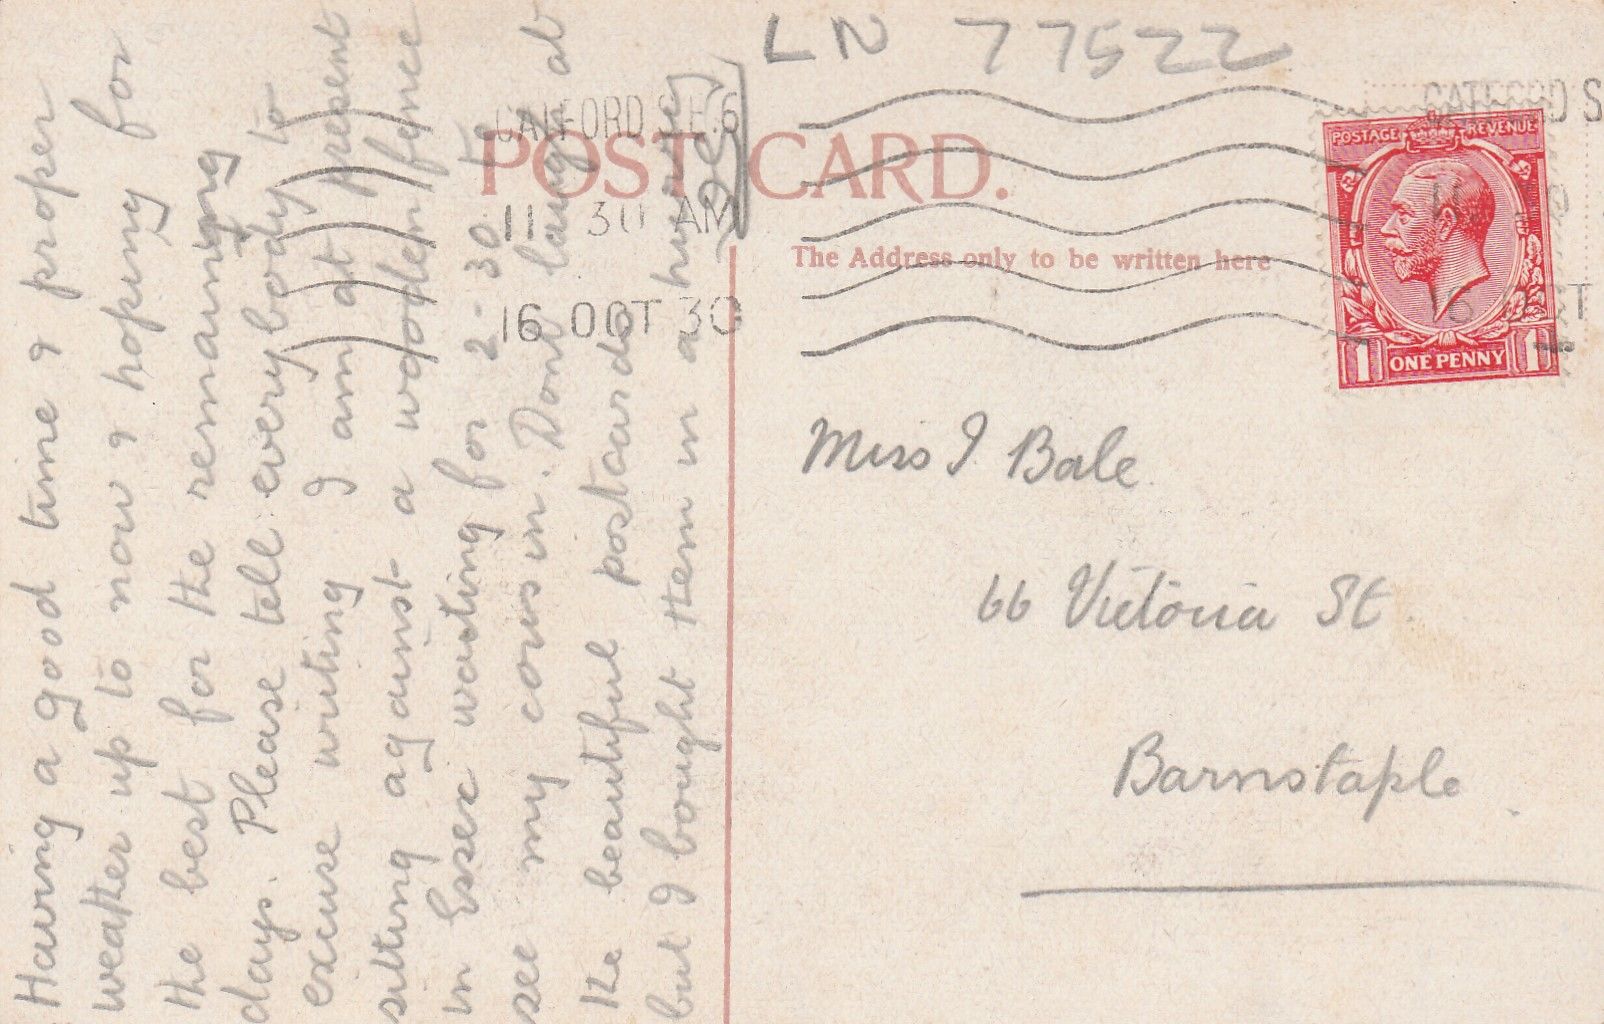 Having a good time & proper
weather up to now & hoping for
the best for the remaining
days. Please tell everybody to
excuse writing I am at present
sitting against a wooden fence
in Essex waiting for 2-30 to
see my cousin. Dont laugh at
the beautiful postcards
but I bought them in a hurry
LN 77522
CATFORD S.E.6
11 30 AM
16 OCT 30
POST CARD.
The Address only to be written here
CATFORD S
16 OCT
POSTAGE REVENUE
1 ONE PENNY 1
Miss I Bale
66 Victoria St
Barnstaple